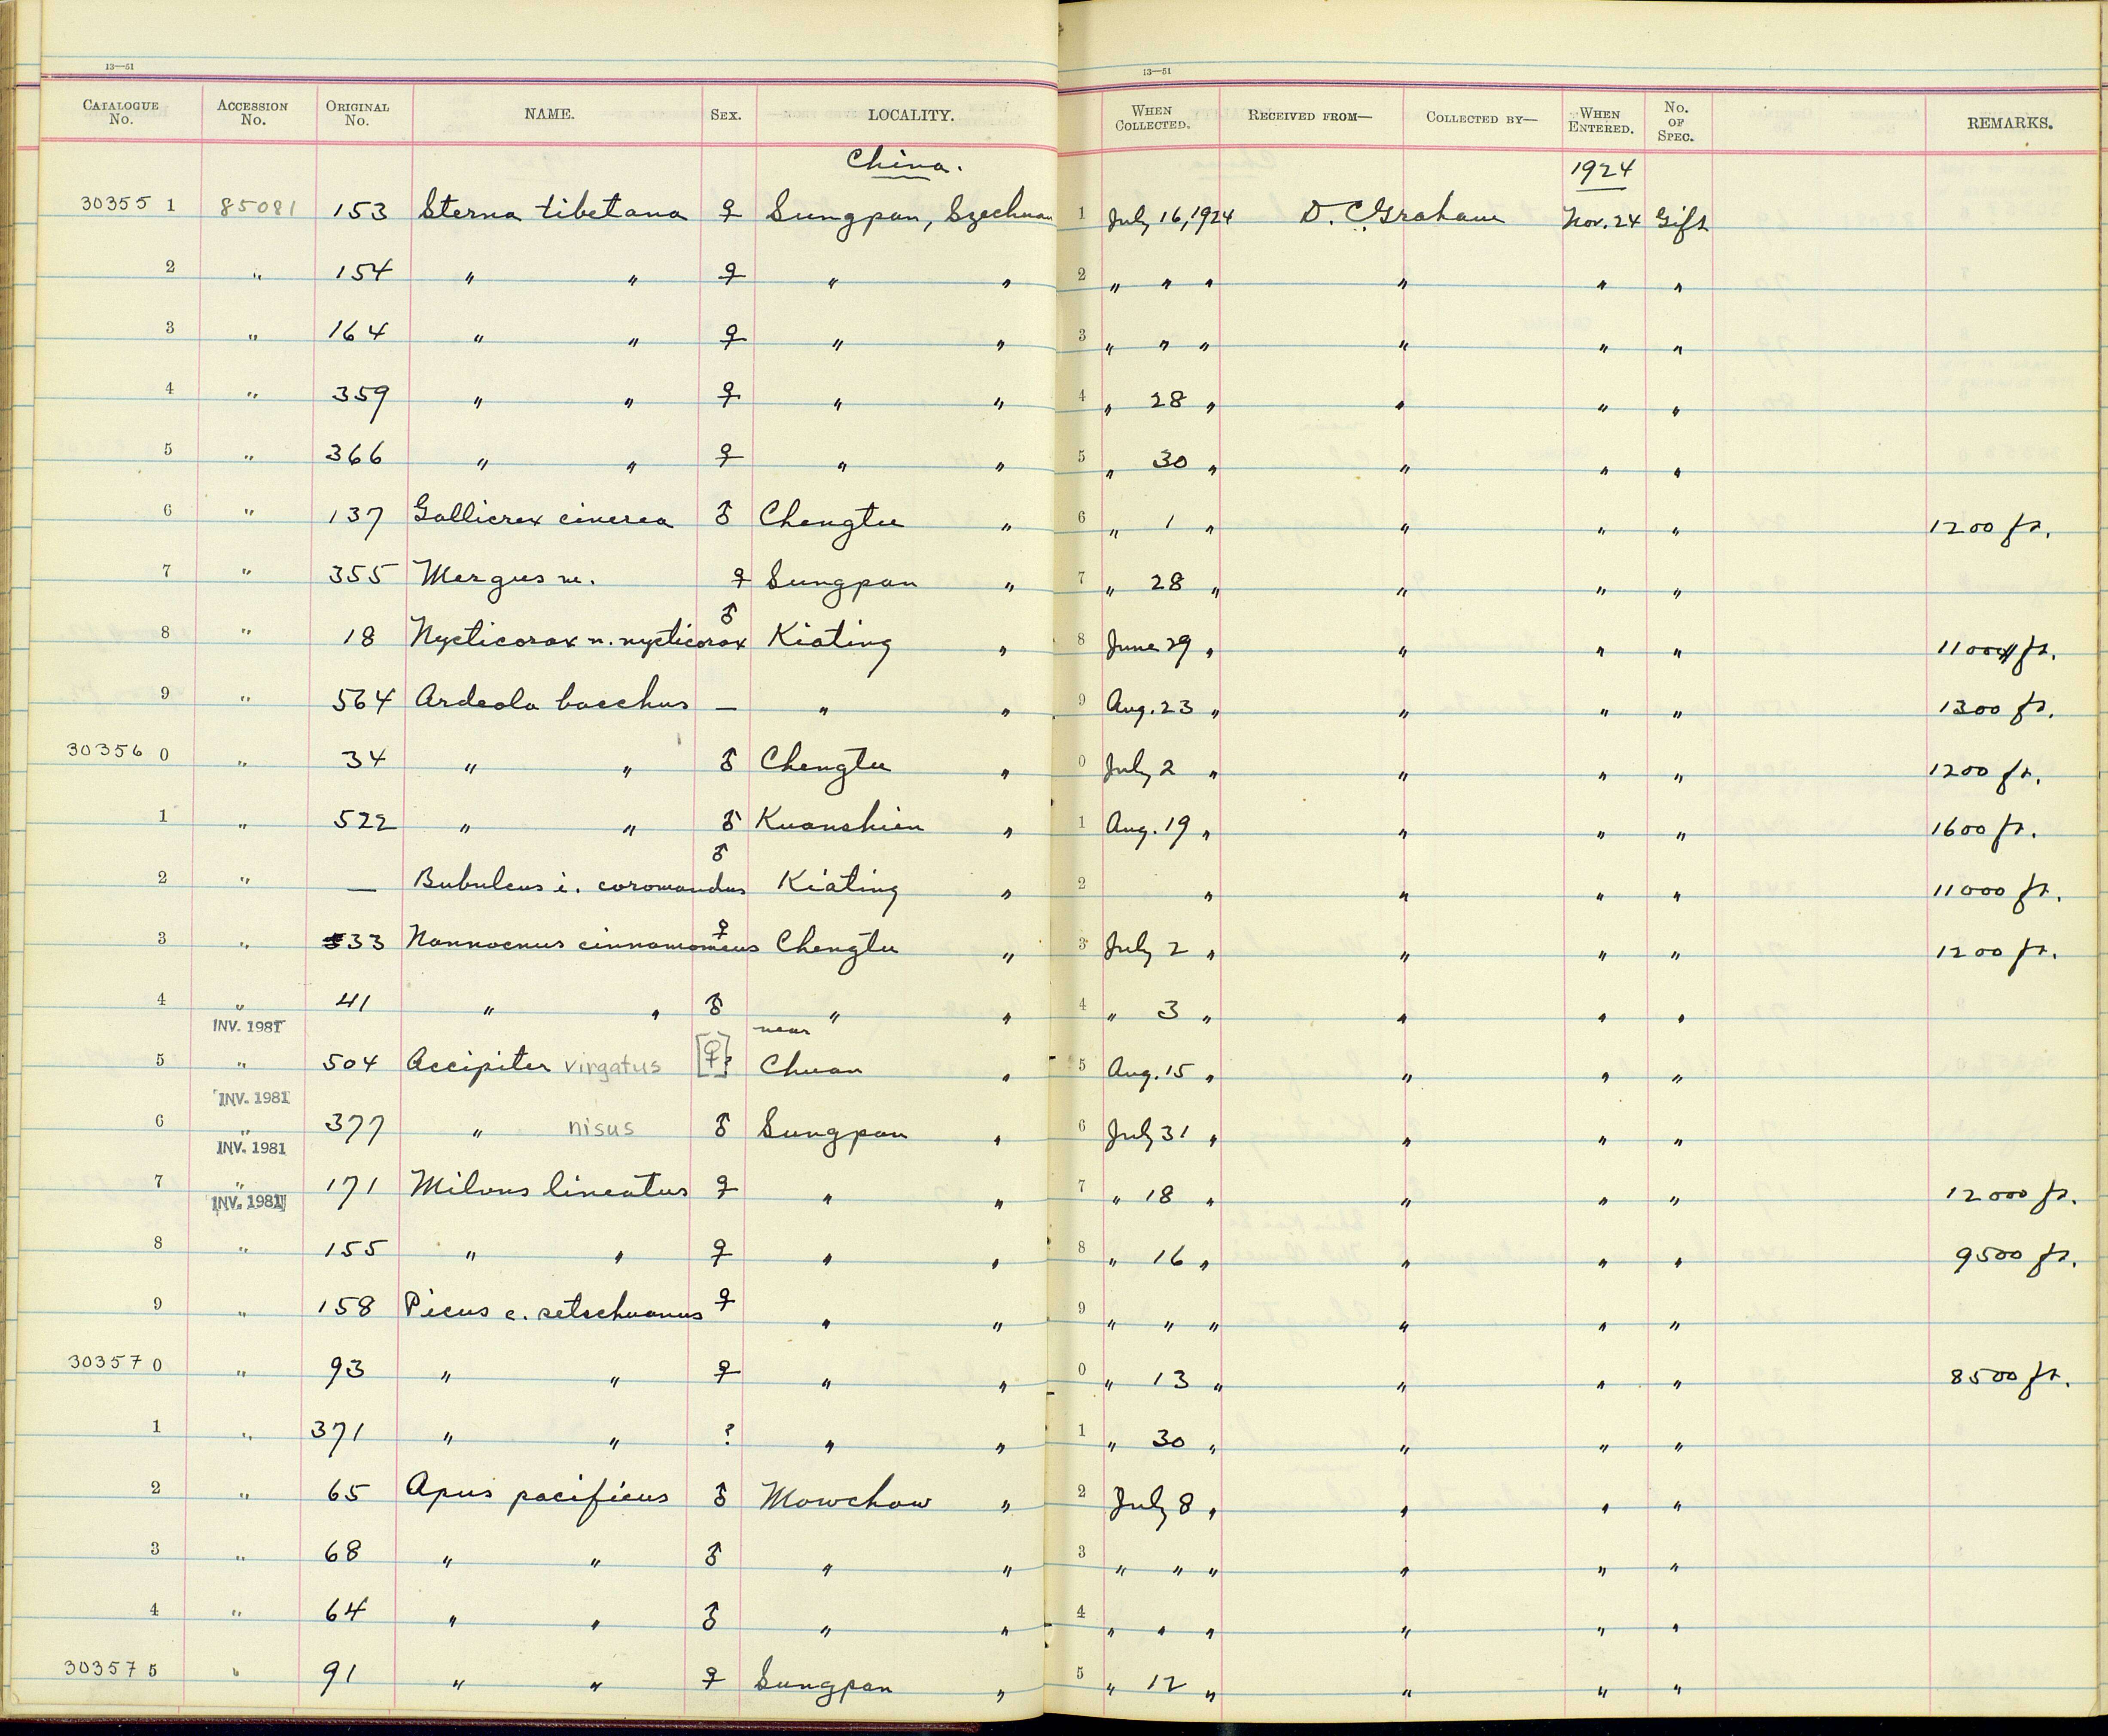 13—51 13—51
CATALOGUE No. ACCESSION No. ORIGINAL No. NAME. SEX. LOCALITY. WHEN COLLECTED. RECEIVED FROM— COLLECTED BY— WHEN ENTERED. No. OF SPEC. REMARKS.
China. 1924
30355 1 85081 153 Sterna tibetana ♀ Sungpan, Szechuan 1 July 16, 1924 D. C. Graham Nov. 24 Gift
2 " 154 " " ♀ " " 2 " " " " " "
3 " 164 " " ♀ " " 3 " " " " " "
4 " 359 " " ♀ " " 4 " 28 " " " "
5 " 366 " " ♀ " " 5 " 30 " " " "
6 " 137 Gallicrex cinerea ♂ Chengtu " 6 " 1 " " " " 1200 ft.
7 " 355 Mergus m. ♀ Sungpan " 7 " 28 " " " "
8 " 18 Nycticorax n. nycticorax ♂ Kiating " 8 June 29 " " " " ft.
9 " 564 Ardeola bacchus — " " 9 Aug. 23 " " " " 1300 ft.
30356 0 " 34 " " ♂ Chengtu " 0 July 2 " " " " 1200 ft.
1 " 522 " " ♂ Kuanshien " 1 Aug. 19 " " " " 1600 ft.
2 " — Bubulcus i. coromandus ♂ Kiating " 2 " " " " 11000 ft.
3 " 33 Nannocnus cinnamomeus ♀ Chengtu " 3 July 2 " " " " 1200 ft.
4 " 41 " " ♂ " " 4 " 3 " " " "
INV. 1981
5 " 504 Accipiter virgatus [♀?] near Chuan " 5 Aug. 15 " " " "
INV. 1981
6 " 377 " nisus ♂ Sungpan " 6 July 31 " " " "
INV. 1981
7 " 171 Milvus lineatus ♀ " " 7 " 18 " " " " 12000 ft.
INV. 1981
8 " 155 " " ♀ " " 8 " 16 " " " " 9500 ft.
9 " 158 Picus c. setschuanus ♀ " " 9 " " " " " "
30357 0 " 93 " " ♀ " " 0 " 13 " " " " 8500 ft.
1 " 371 " " ? " " 1 " 30 " " " "
2 " 65 Apus pacificus ♂ Mowchow " 2 July 8 " " " "
3 " 68 " " ♂ " " 3 " " " " " "
4 " 64 " " ♂ " " 4 " " " " " "
30357 5 " 91 " " ♀ Sungpan " 5 " 12 " " " "